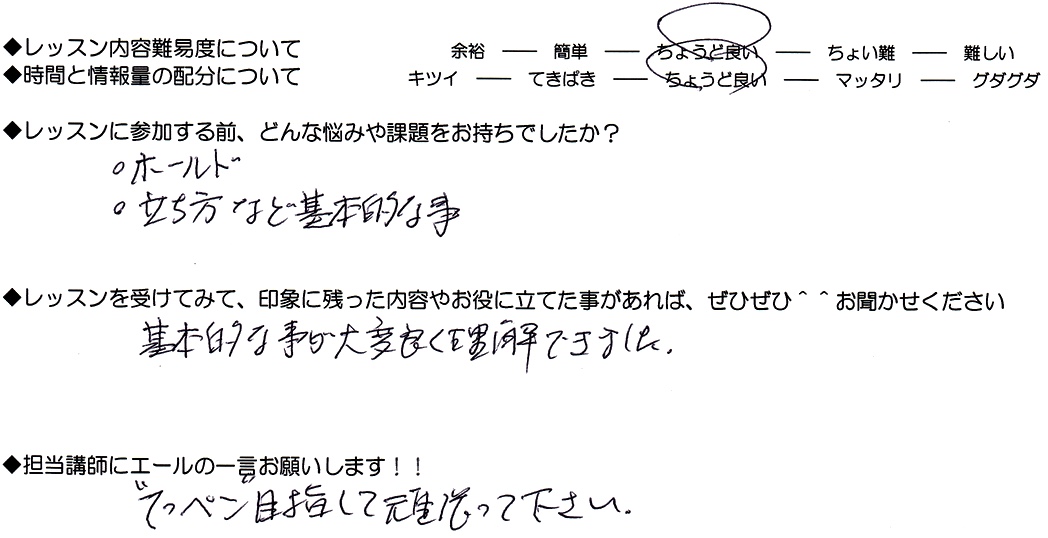 ◆レッスン内容難易度について 余裕 ― 簡単 ― ちょうど良い ― ちょい難 ― 難しい
◆時間と情報量の配分について キツイ ― てきぱき ― ちょうど良い ― マッタリ ― グダグダ
◆レッスンに参加する前、どんな悩みや課題をお持ちでしたか？
○ホールド
○立ち方など基本的な事
◆レッスンを受けてみて、印象に残った内容やお役に立てた事があれば、ぜひぜひ＾＾お聞かせください
基本的な事が大変良く理解できました.
◆担当講師にエールの一言お願いします！！
"てっペン"目指して頑張って下さい.